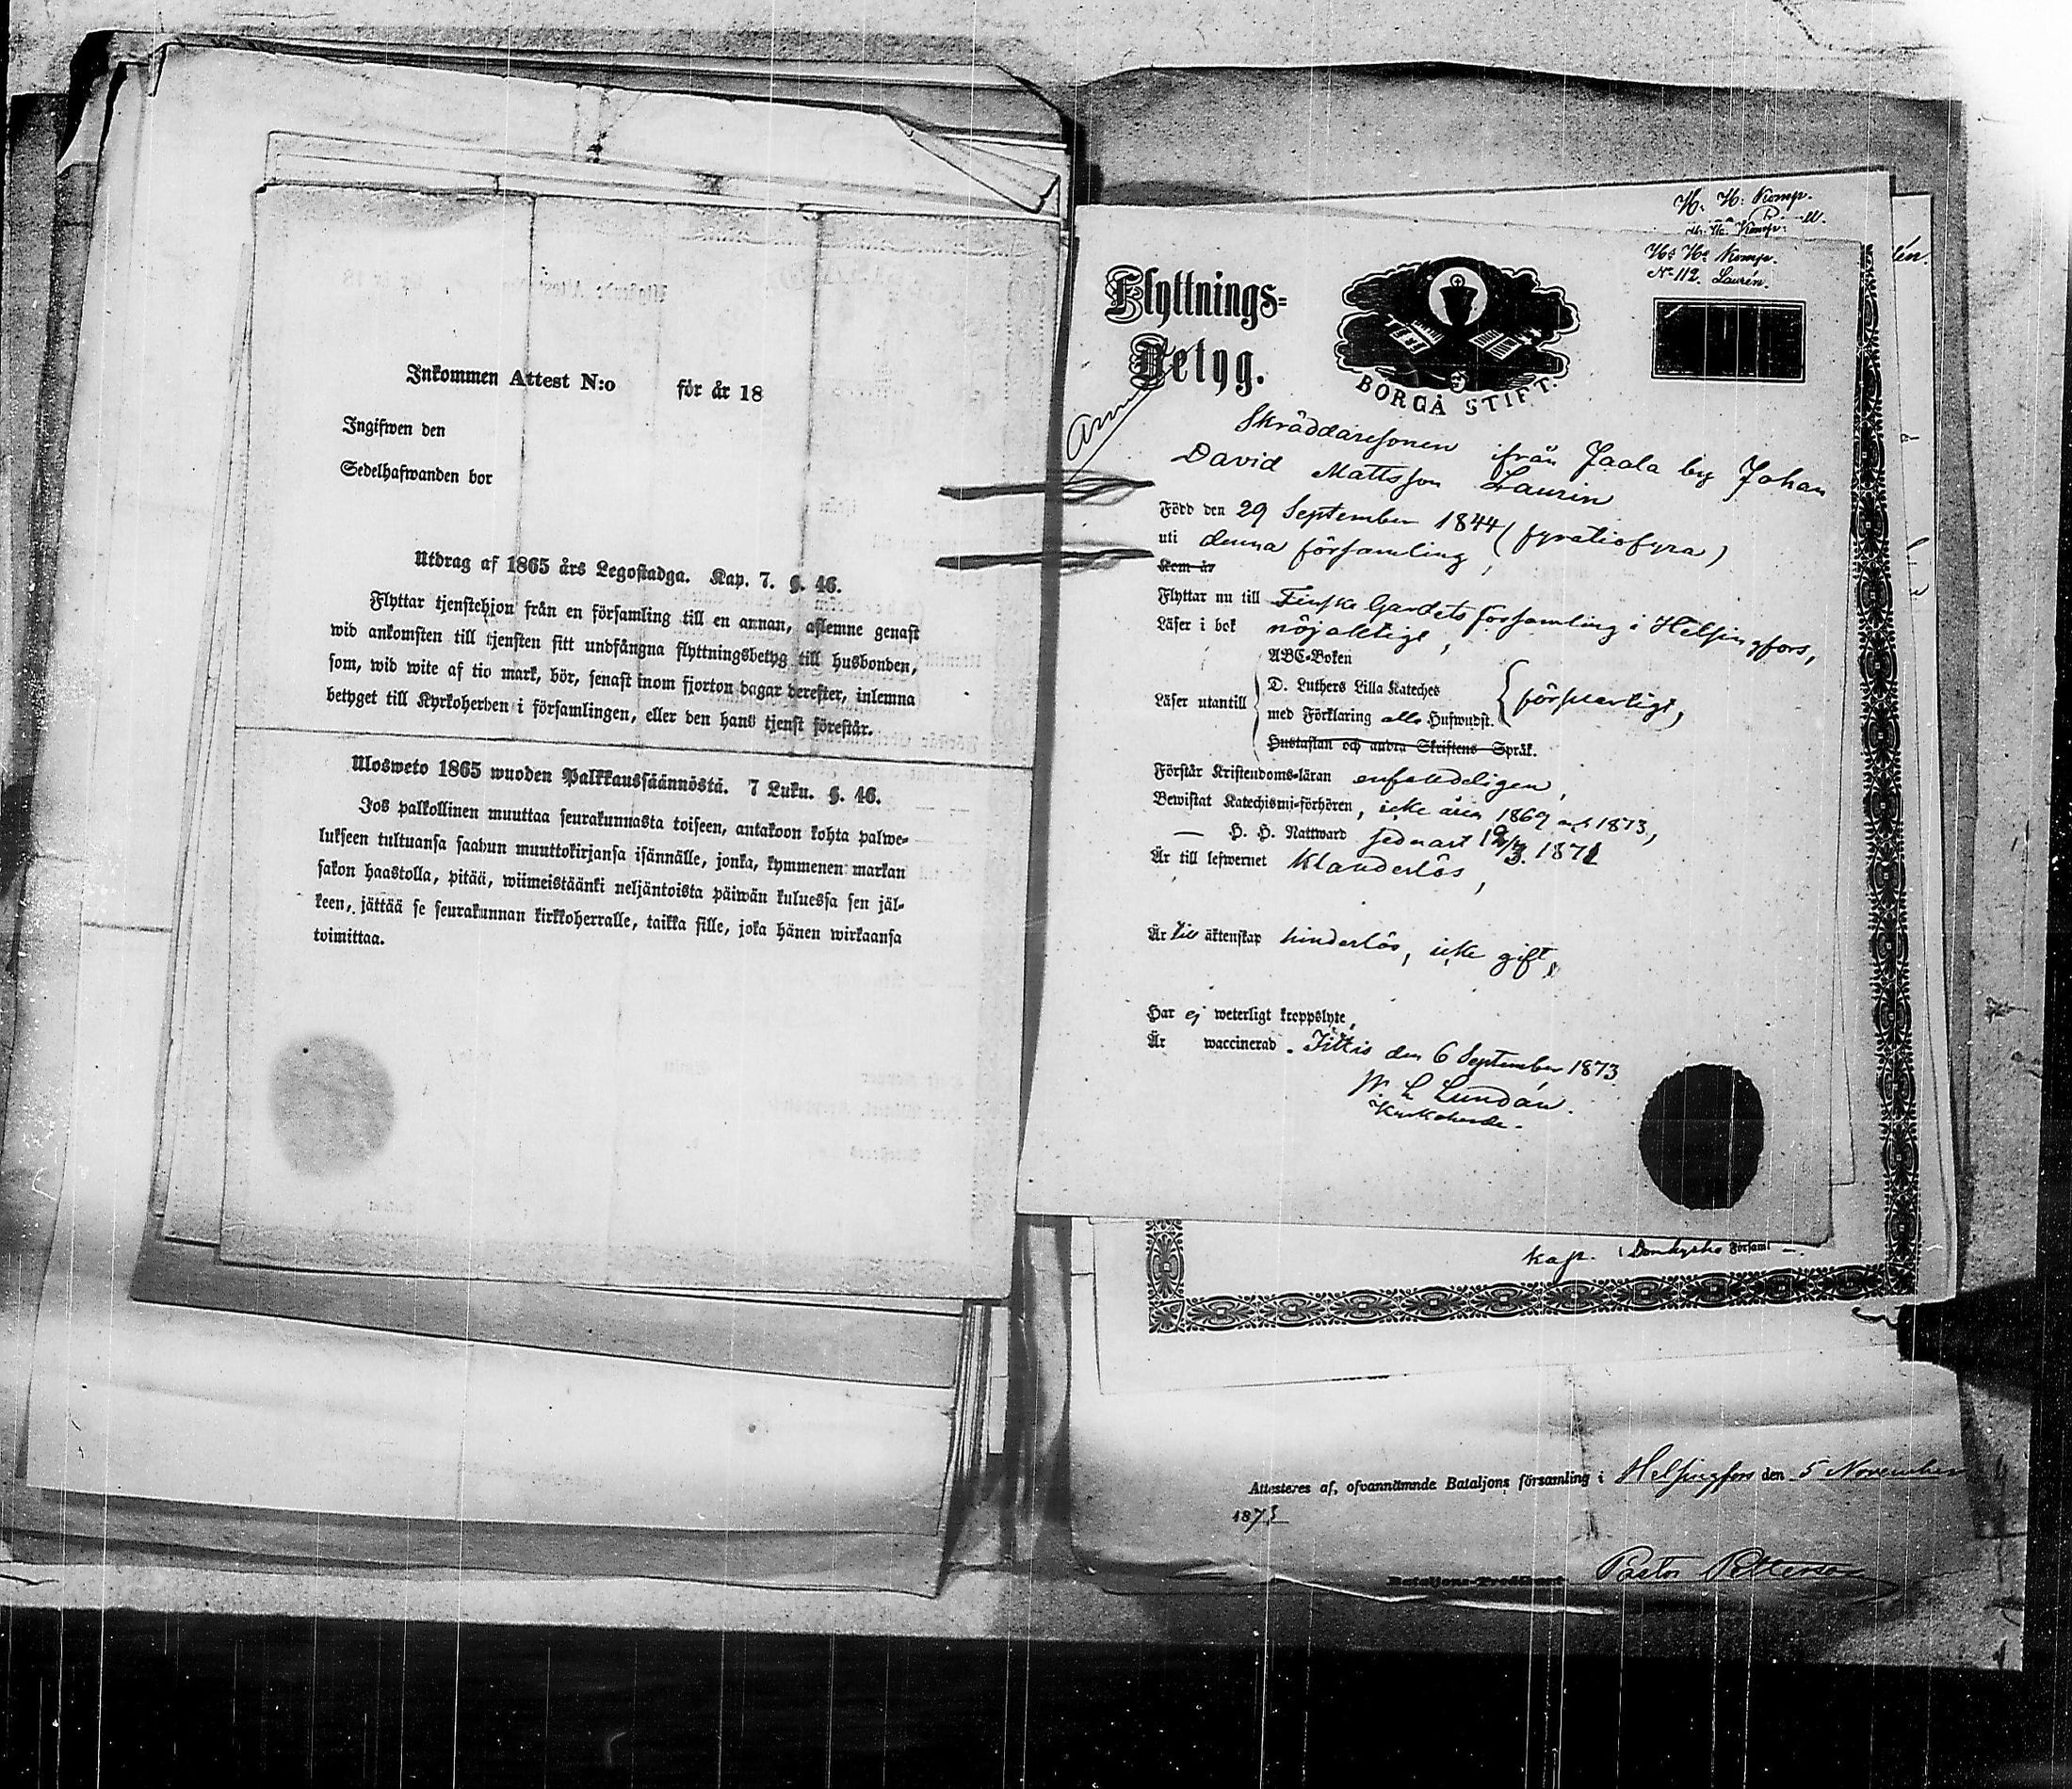 Inkommen Attest N:o för år 18
Ingifwen den
Sedelhafwanden bor
Utdrag af 1865 års Legostadga. Kap. 7. §. 46.
Flyttar tjenstehjon från en församling till en annan, aflemne genast
wid ankomsten till tjensten sitt undfångna flyttningsbetyg till husbonden,
som, wid wite af tio mark, bör, senast inom fjorton dagar derefter, inlemna
betyget till Kyrkoherden i församlingen, eller den hans tjenst förestår.
Ulosweto 1865 wuoden Palkkaussäännöstä. 7 Luku. §. 46.
Jos palkollinen muuttaa seurakunnasta toiseen, antakoon kohta palwe-
lukseen tultuansa saadun muuttokirjansa isännälle, jonka, kymmenen markan
sakon haastolla, pitää, wiimeistäänki neljäntoista päiwän kuluessa sen jäl-
keen, jättää se seurakunnan kirkkoherralle, taikka sille, joka hänen wirkaansa
toimittaa.
H. H. Komp.
Komp.
H: H: Komp.
No 112. Laurén.
Flyttnings-
Betyg.
BORGÅ STIFT.
Skräddaresonen ifrån Jaala by Johan
David Mattsson Laurin
Född den 29 September 1844 (fyratiofyra)
uti denna församling,
Kom år
Flyttar nu till Finska Gardets församling i Helsingfors,
Läser i bok nöjaktigt,
ABC-Boken
D. Luthers Lilla Kateches
Läser utantill
med Förklaring alla Hufwudst. försvarligt,
Hustaflan och andra Skriftens Språk.
Förstår Kristendoms-läran enfaldeligen,
Bewistat Katechismi-förhören, icke åren 1869 1873,
— H. H. Nattward sednast 1871
Är till lefwernet klanderlös,
Är till äktenskap hinderlös, icke gift,
Har ej weterligt kroppslyte,
Är waccinerad. Iittis den 6 September 1873
W L Lundán.
Kyrkoherde.
kap. i Domkyrko Församl
Attesteres af, ofvannämnde Bataljons församling i Helsingfors den 5 November
1873
Bataljons-Predikant Pastor Petterson